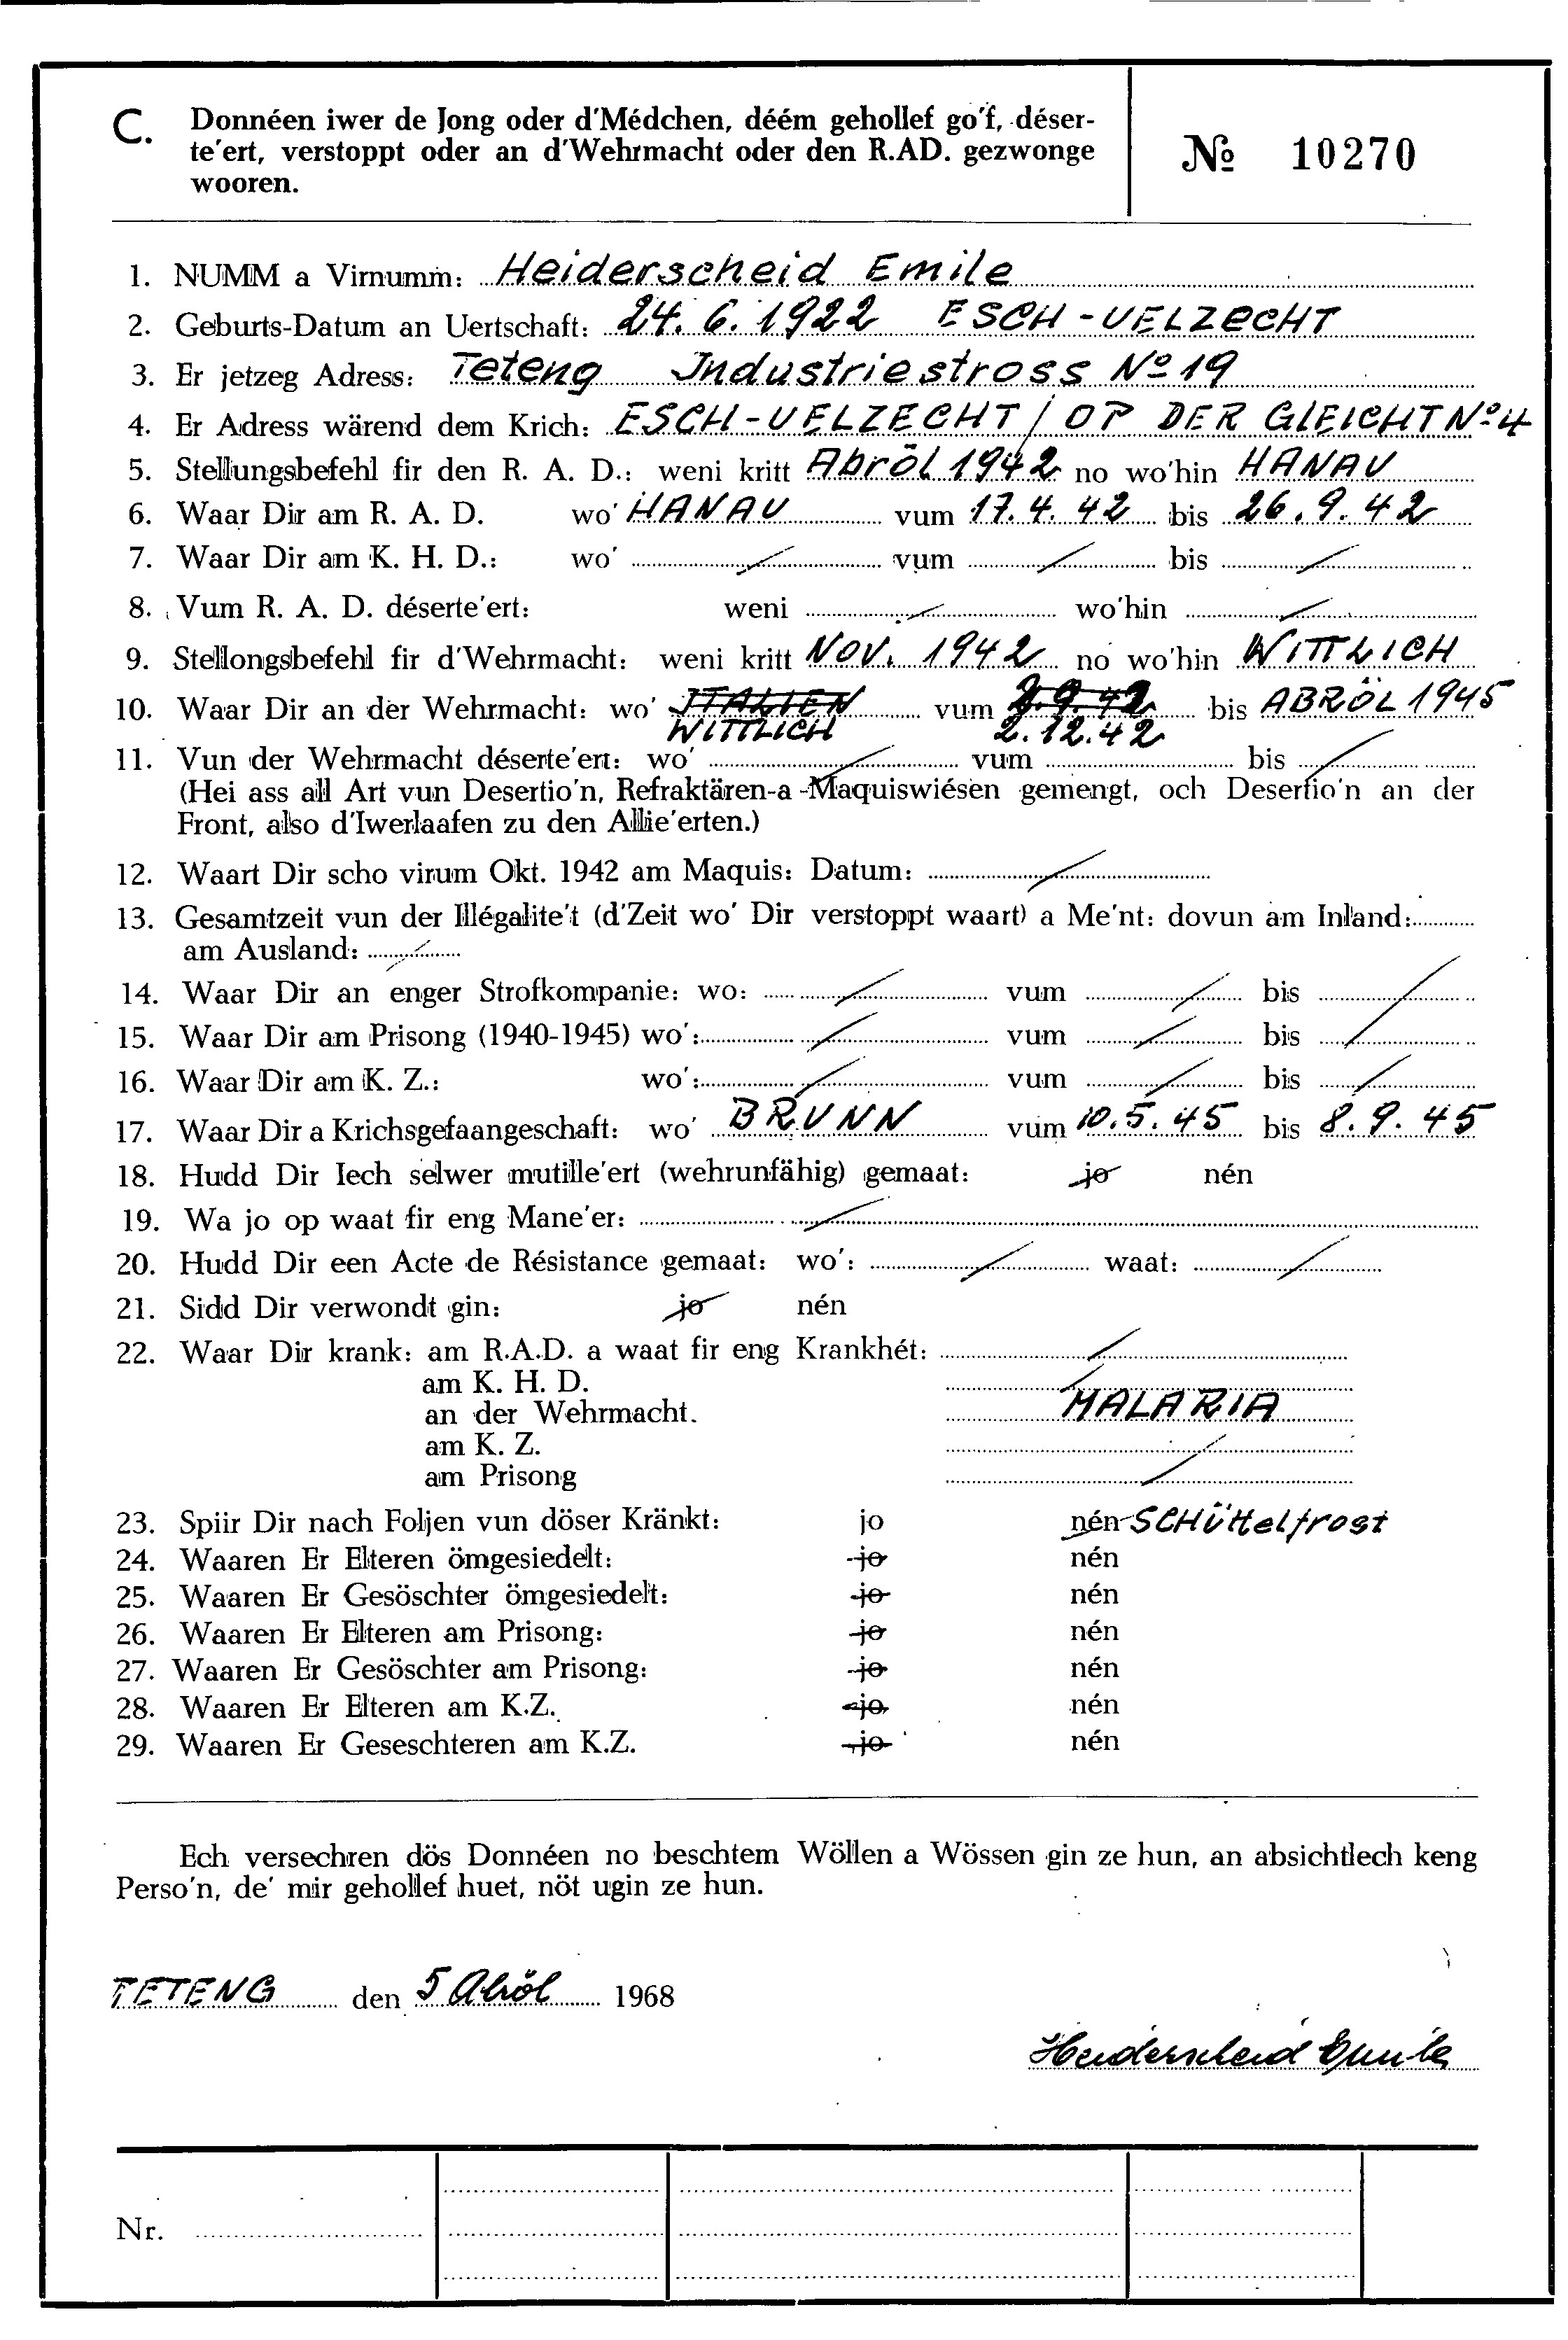 C. Donnéen iwer de Jong oder d'Médchen, déém gehollef go'f, déser-
te'ert, verstoppt oder an d'Wehrmacht oder den R.AD. gezwonge
wooren.
№ 10270
1. NUMM a Virnumm: Heiderscheid Emile
2. Geburts-Datum an Uertschaft: 24. 6. 1922 ESCH-UELZECHT
3. Er jetzeg Adress: Teteng Industriestross No 19
4. Er Adress wärend dem Krich: ESCH-UELZECHT / OP DER GLEICHT No 4
5. Stellungsbefehl fir den R. A. D.: weni kritt Abröl 1942 no wo'hin HANAU
6. Waar Dir am R. A. D. wo' HANAU vum 17. 4. 42 bis 26. 9. 42
7. Waar Dir am K. H. D.: wo' / vum / bis /
8. Vum R. A. D. déserte'ert: weni / wo'hin /
9. Stellongsbefehl fir d'Wehrmacht: weni kritt NOV. 1942 no wo'hin WITTLICH
10. Waar Dir an der Wehrmacht: wo' ITALIEN vum 2.9.42 bis ABRÖL 1945
WITTLICH 2.12.42
11. Vun der Wehrmacht déserte'ert: wo' / vum bis /
(Hei ass all Art vun Desertio'n, Refraktären-a -Maquiswiésen gemengt, och Desertio'n an der
Front, also d'Iwerlaafen zu den Allie'erten.)
12. Waart Dir scho virum Okt. 1942 am Maquis: Datum: /
13. Gesamtzeit vun der Illégalite't (d'Zeit wo' Dir verstoppt waart) a Me'nt: dovun am Inland:
am Ausland: /
14. Waar Dir an enger Strofkompanie: wo: / vum / bis /
15. Waar Dir am Prisong (1940-1945) wo': / vum / bis /
16. Waar Dir am K. Z.: wo': / vum / bis /
17. Waar Dir a Krichsgefaangeschaft: wo' BRUNN vum 10. 5. 45 bis 8. 9. 45
18. Hudd Dir Iech selwer mutille'ert (wehrunfähig) gemaat: jo nén
19. Wa jo op waat fir eng Mane'er: /
20. Hudd Dir een Acte de Résistance gemaat: wo': / waat: /
21. Sidd Dir verwondt gin: jo nén
22. Waar Dir krank: am R.A.D. a waat fir eng Krankhét: /
am K. H. D. /
an der Wehrmacht. MALARIA
am K. Z. /
am Prisong /
23. Spiir Dir nach Foljen vun döser Kränkt: jo nén SCHüttelfrost
24. Waaren Er Elteren ömgesiedelt: jo nén
25. Waaren Er Gesöschter ömgesiedelt: jo nén
26. Waaren Er Elteren am Prisong: jo nén
27. Waaren Er Gesöschter am Prisong: jo nén
28. Waaren Er Elteren am K.Z. jo nén
29. Waaren Er Geseschteren am K.Z. jo nén
Ech versechren dös Donnéen no beschtem Wöllen a Wössen gin ze hun, an absichtlech keng
Perso'n, de' mir gehollef huet, nöt ugin ze hun.
TETENG den 5 Abröl 1968
Heiderscheid Emile
Nr.